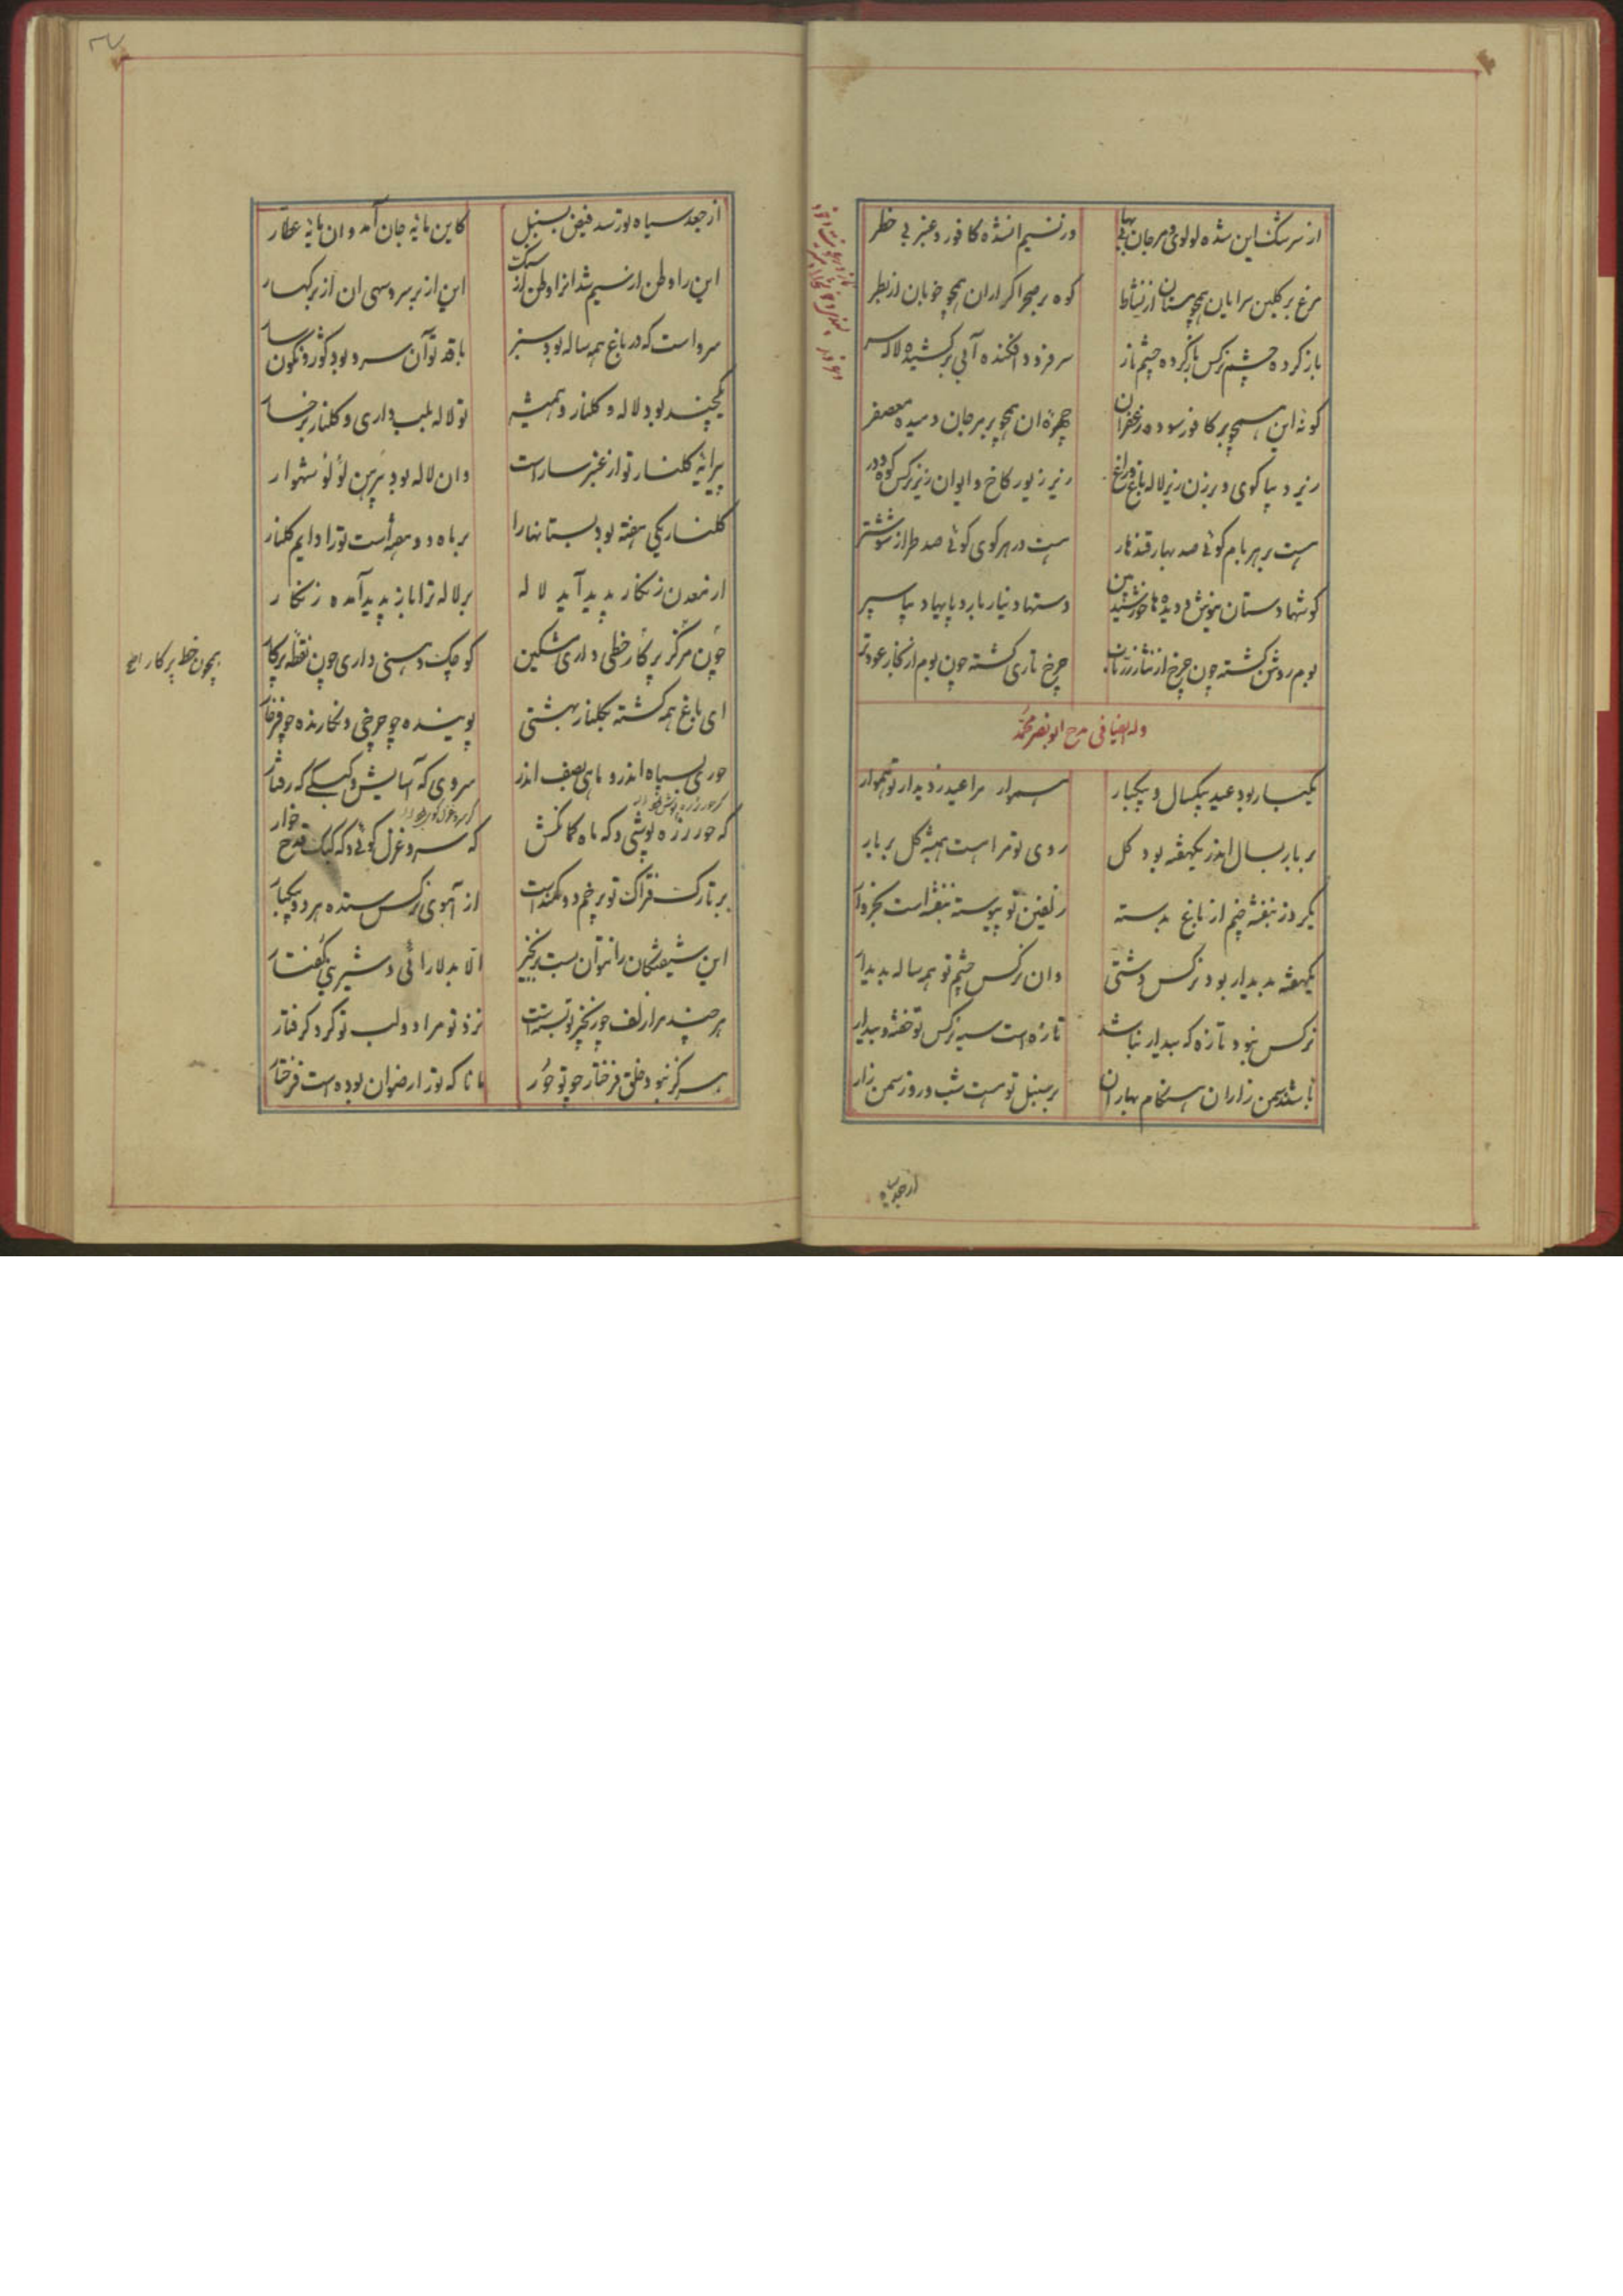 از سرشک این شده لولوی و مرجان بی بها
در نسیم انشده کافور و عنبر بی خطر
مرغ بر کلبن سرایان همچو مستان از نشاط
کوه بر صحرا کرازان همچو خوبان از بطر
باز کرده چشم نرکس باز کرده چشم باز
سر فرود افکنده آبی بر کشیده لاله سر
کونهٔ این همچو بر کافور سوده زعفران
چهرهٔ ان همچو بر مرجان دمیده معصفر
زیر دیبا کوی و برزن زیر لاله باغ و راغ
زیر زیور کاخ و ایوان زیر نرکس کوه و در
هست بر هر بام کوئی صد بهار قندهار
هست در هر کوی کوئی صد طراز شوشتر
کوشها دستان نیوش و دیده ها خورشید بین
دستها دینار بار و پایها دیبا سپر
بوم روشن کشته چون چرخ از نثار زر ناب
چرخ تاری کشته چون بوم از بخار عود تر
وله ایضا فی مدح ابو نصر محمد
یکبار بود عید بیکسال و بیکبار
همواره مرا عید ز دیدار تو هموار
بر بار بسال اندر یکهفته بود کل
روی تو مرا است همیشه کل بر بار
یکروز بنفشه چنم از باغ بدسته
زلفین تو پیوسته بنفشه است بخروار
یکهفته بدیدار بود نرکس دشتی
وان نرکس چشم تو همه ساله بدیدار
نرکس نبود تازه که بیدار نباشد
تازه است سیه نرکس تو خفته و بیدار
باشند سمن زاران هنکام بهاران
بر سنبل تو هست شب و روز سمن زار
از جعد سیاه
از جعد سیاه تو رسد فیض بسنبل
کاین مایهٔ جان آمد و ان مایهٔ عطار
این را وطن از سیم شد انرا وطن از سنک
این از بر سرو سهی ان از بر کهسار
سرو است که در باغ همه ساله بود سبز
با قد تو آن سرو بود کوژ و نکونسار
یکچند بود لاله و کلنار و همیشه
تو لاله بلب داری و کلنار برخسار
پیرایهٔ کلنار تو از عنبر سارا است
وان لاله بود پیرهن لؤلؤ شهوار
کلنار یکی هفته بود بستانها را
بر ماه دو هفته است تو را دایم کلنار
از معدن زنکار پدید آید لاله
بر لاله ترا باز پدید آمده زنکار
چون مرکز پرکار خطی داری مشکین
کوچک دهنی داری چون نقطه پرکار
همچون خط پرکار
ای باغ همه کشته بکلنار بهشتی
پوینده چو چرخی و نکارنده چو فرخار
حوری بسپاه اندر و ماهی بصف اندر
سروی که آسایش و کبکی که رفتار
که حور زره پوشی و که ماه کمانکش
که سرو غزل کوئی و که کبک قدح خوار
بر تارک فتراک تو بر خم دو کمند است
از آهوی نرکس ستده هر دو بیکبار
این شیفتکان را نتوان بست بزنجیر
الا بدلارائی و شیرینی کفتار
هر چند مرا زلف چو زنجیر تو بسته است
نزد تو مرا دو لب تو کرد کرفتار
هرکز نبود خلق فرخار چو تو حور
مانا که تو را رضوان بوده است فرخار